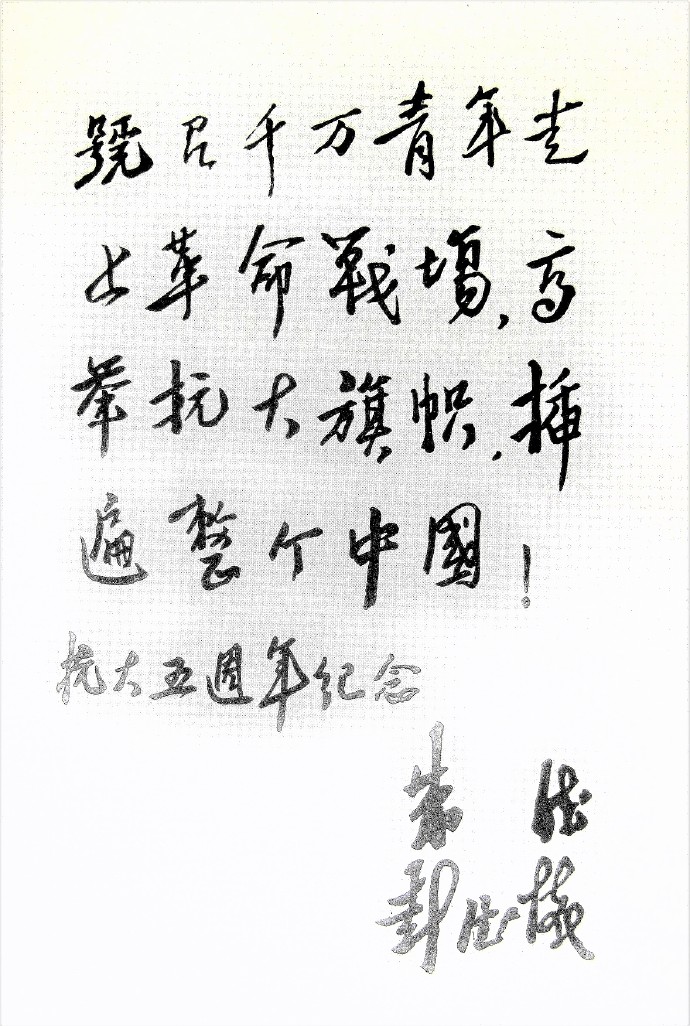 號召千万青年走
上革命戰場,高
举抗大旗帜,插
遍整个中國!
抗大五週年纪念
朱德
彭德懷